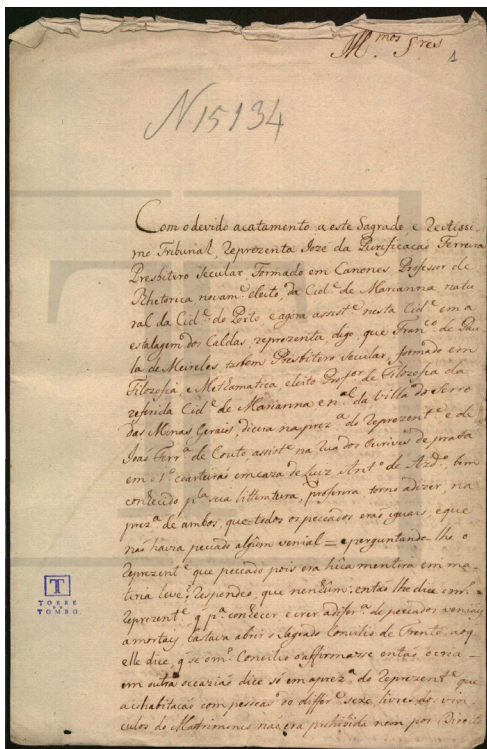 M.mos S.res
1
N 15134
Com o devido acatamento a este Sagrado, e Rectissi-
mo Tribunal, Reprezenta Joze da Purificação Ferreira
Presbitero Secular, Formado em Canones, Professor de
Rhetorica novam.e eleito da Cid.e de Marianna natu
ral da Cid.e do Porto e agora assist.e nesta Cid.e em a
estalagem dos Caldas, reprezenta digo que Fran.co de Pau
la de Meireles tãobem Presbitero Secular, formado em
Filozofia, e Mathematica, eleito Prof.or de Filozofia da
referida Cid.e de Marianna e n.al da Villa do Serro
das Minas Geraes, dicera na prez.a do Reprezent.e e de
Joaõ Ferr.a do Couto, assist.e na rua dos Ourives da prata
em o 1.o coarteiraõ em caza de Luiz Ant.o de Az.do, bem
conhecido p.la sua litteratura, proferira torno a dizer, na
prez.a de ambos, que todos os peccados eraõ iguais, e que
naõ havia peccado algum venial = e perguntando-lhe o
Reprezent.e que peccado pois era hũa mentira em ma-
teria leve? Respondeo, que nenhum: entaõ lhe dice o
Reprezent.e q p.a conhecer e crer a difer.a de peccados veniaes
a mortaes bastava abrir o Sagrado Concilio de Trento, ao q
elle dice, q se o m.o Concilio o affirmasse entaõ o cria =
em outra occaziaõ dice só em a prez.a do Reprezent.e que
a cohabitaçaõ com pessoas do differ.e sexo, livres do vin-
culos do Matrimonio naõ era prohibida nem por Direito
T
TORRE
DO
TOMBO